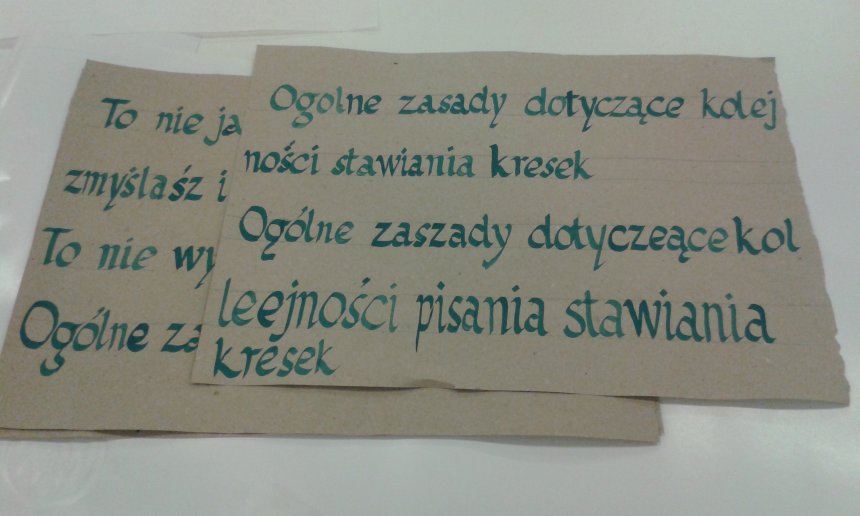 To nie ja
zmyślasz i
To nie wy
Ogólne za
Ogolne zasady dotyczące kolej
ności stawiania kresek
Ogólne zaszady dotyczeące kol
leejności pisania stawiania
kresek